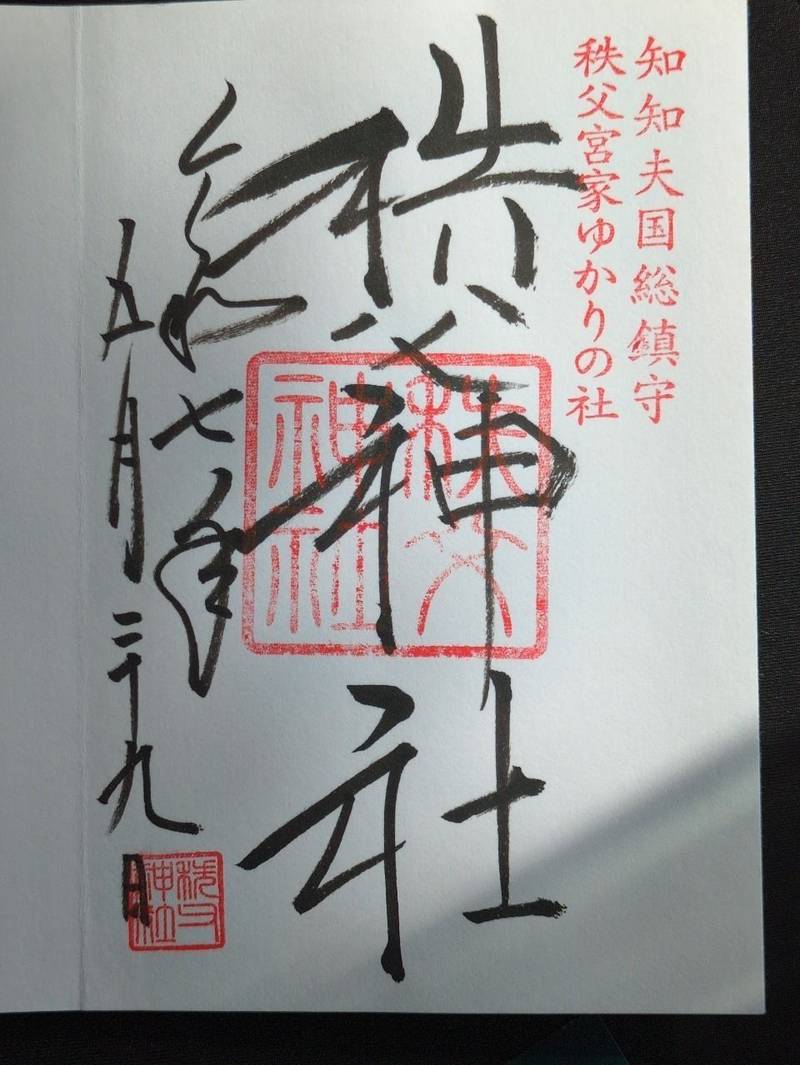 知知夫国総鎮守
秩父宮家ゆかりの社
秩父神社
秩父神社
令和七年
五月二十九日
秩父神社